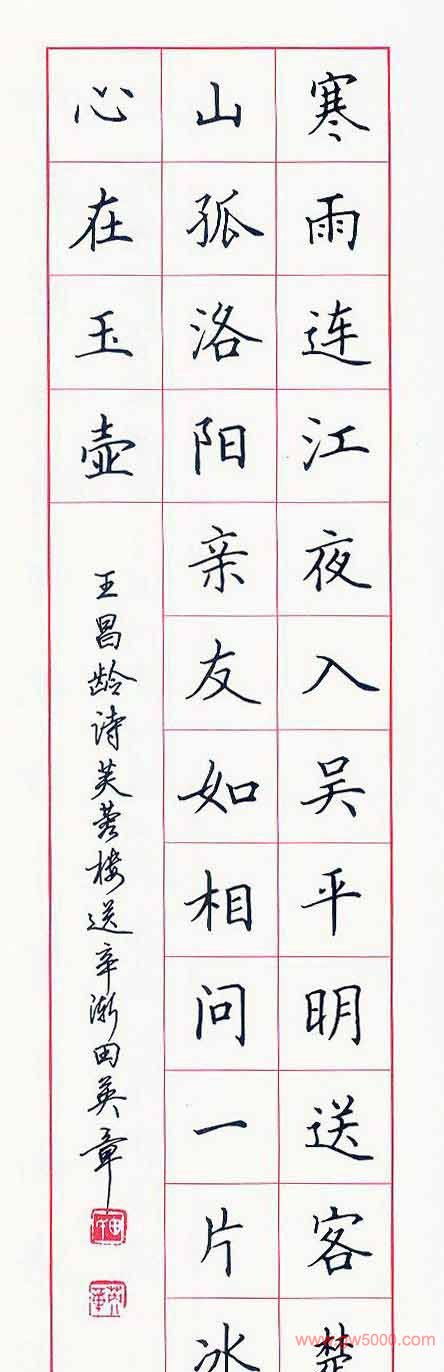 寒雨连江夜入吴平明送客楚
山孤洛阳亲友如相问一片冰
心在玉壶
王昌龄诗芙蓉楼送辛渐田英章
田
英章
www.gw5000.com